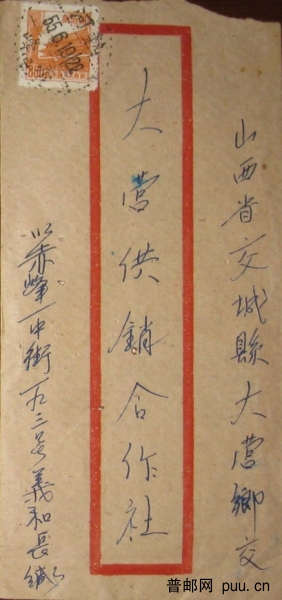 山西省交城縣大營鄉交
大營供銷合作社
赤峰一中街一九三号義和長緘
55.6.19.20
800
普邮网 puu.cn